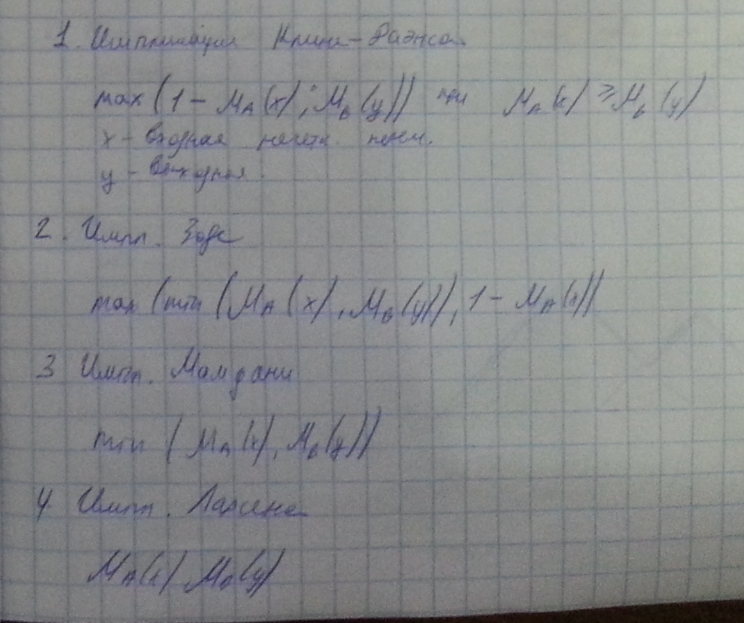 1. Импликация Клини-Даэнса
max (1 – Ma(x); Mb(y)) при Ma(x) ≥ Mb(y)
x – входная нечетк. перем.
y – выходная.
2. Импл. Заде
max (min (Ma(x), Mb(y)), 1 – Ma(x))
3 Импл. Мамдани
min (Ma(x), Mb(y))
4 Импл. Ларсена
Ma(x) Mb(y)